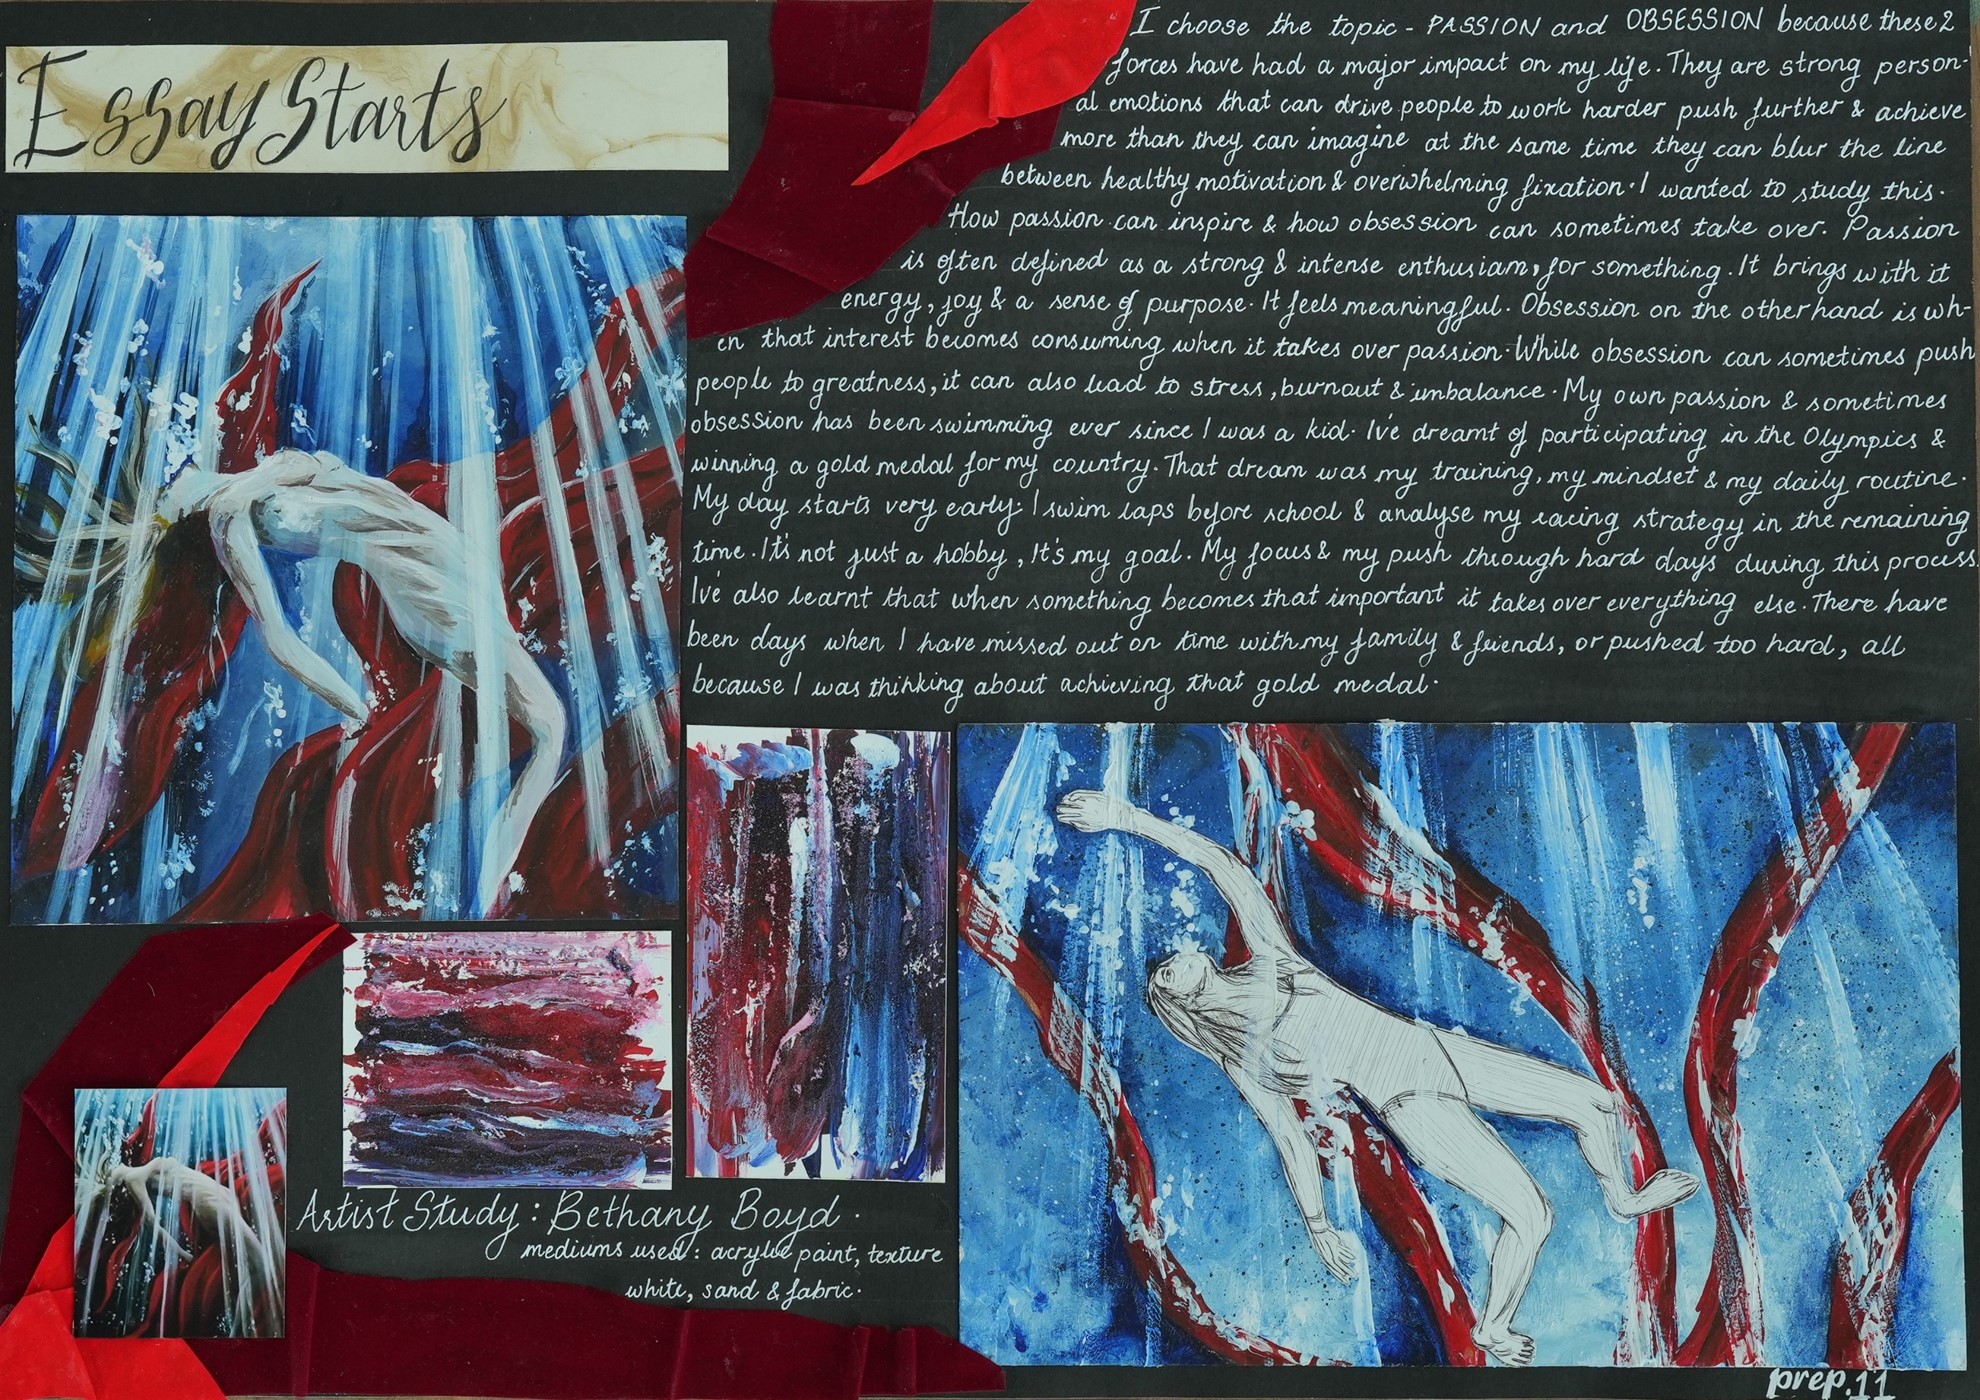 Essay Starts
I choose the topic - PASSION and OBSESSION because these 2
forces have had a major impact on my life. They are strong person-
al emotions that can drive people to work harder push further & achieve
more than they can imagine at the same time they can blur the line
between healthy motivation & overwhelming fixation. I wanted to study this.
How passion can inspire & how obsession can sometimes take over. Passion
is often defined as a strong & intense enthusiam, for something. It brings with it
energy, joy & a sense of purpose. It feels meaningful. Obsession on the other hand is wh-
en that interest becomes consuming when it takes over passion. While obsession can sometimes push
people to greatness, it can also lead to stress, burnout & imbalance. My own passion & sometimes
obsession has been swimming ever since I was a kid. I've dreamt of participating in the Olympics &
winning a gold medal for my country. That dream was my training, my mindset & my daily routine.
My day starts very early: I swim laps before school & analyse my racing strategy in the remaining
time. It's not just a hobby, It's my goal. My focus & my push through hard days during this process.
I've also learnt that when something becomes that important it takes over everything else. There have
been days when I have missed out on time with my family & friends, or pushed too hard, all
because I was thinking about achieving that gold medal.
Artist Study: Bethany Boyd.
mediums used: acrylic paint, texture
white, sand & fabric.
prep.11